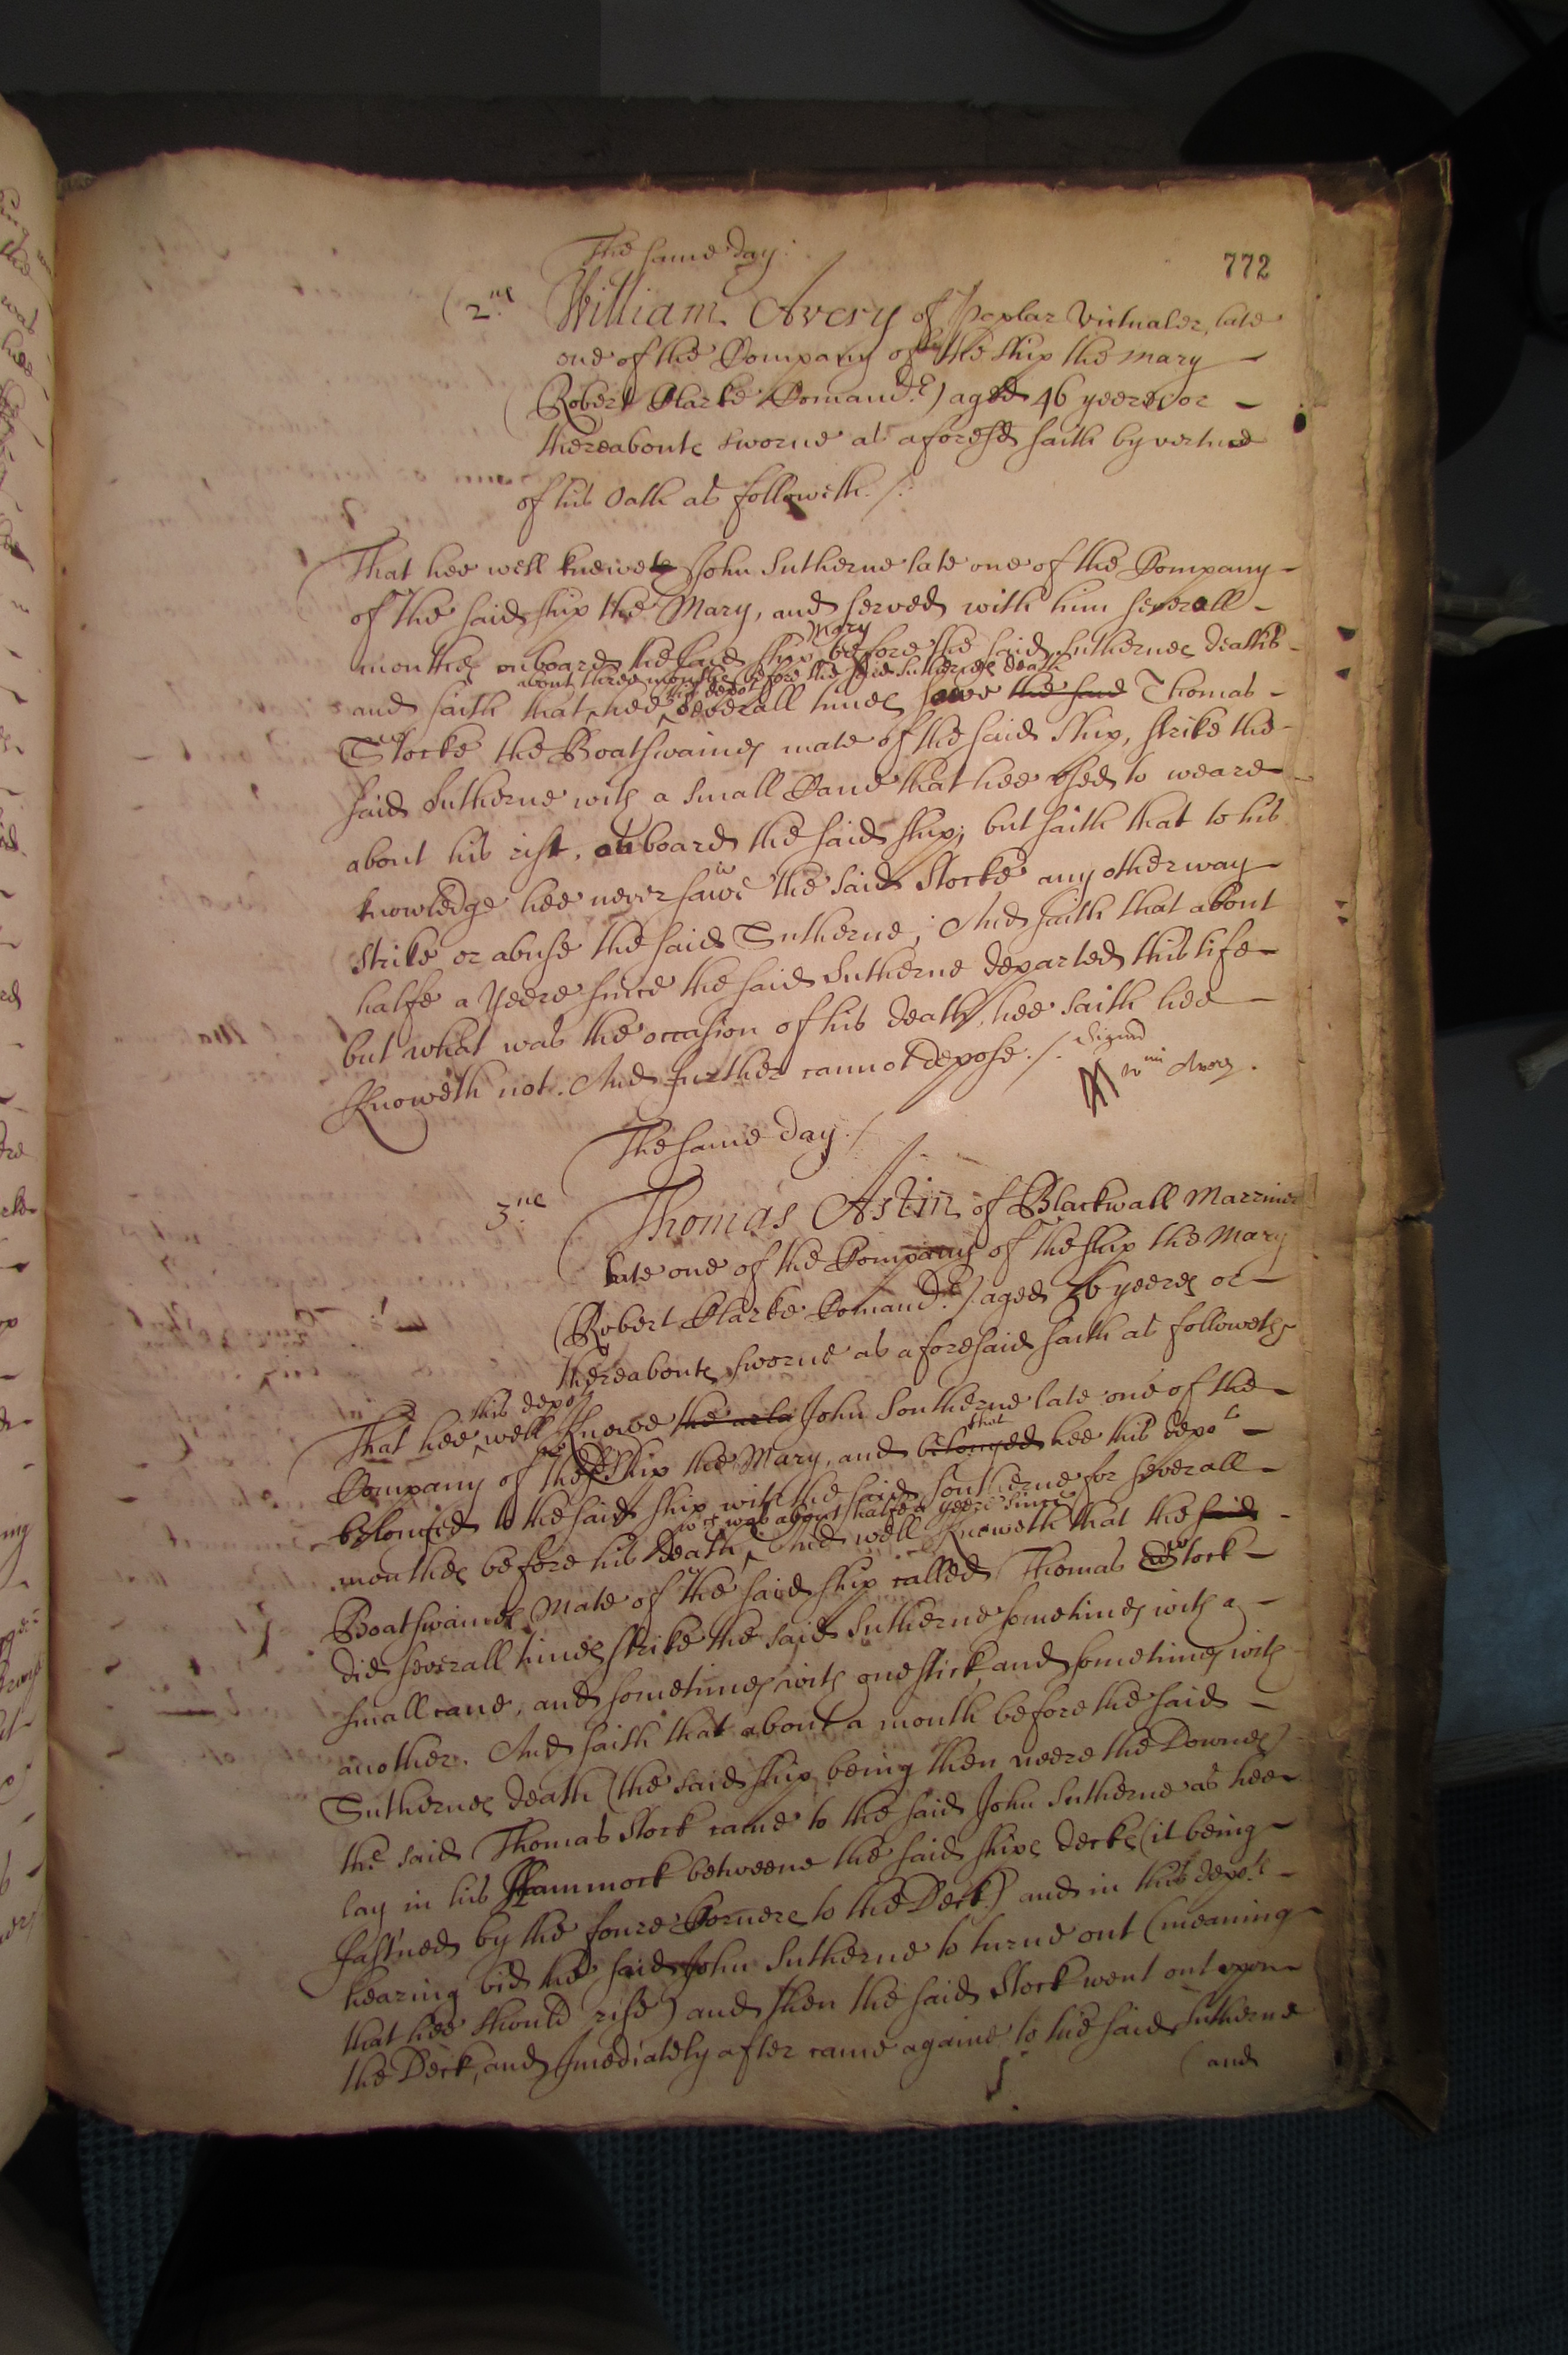 The same day:
772
2.ns William Avery of Poplar Victualer, late
one of the Company of the ship the Mary
(Robert Clarke Comand.r) aged 46 yeeres or
thereaboute sworne as aforesd saith by vertue
of his Oath as followeth./:
That hee well knewe John Sutherne late one of the Company
of the said ship the Mary, and served with him severall
Mary
monthes onboard the said ship before the said Suthernes death
about three monthes before the said Suthernes death
this depot
and saith that hee severall times sawe the said Thomas
Stocke the Boatswaines mate of the said ship, strike the
said Sutherne with a small Cane that hee used to weare
about his rist, onboard the said ship; but saith that to his
knowledge hee never sawe the said Stocke any other way
strike or abuse the said Sutherne; And saith that about
halfe a Yeere since the said Sutherne departed this life
but what was the occasion of his death, hee saith hee
Knoweth not. And further cannot depose./. Signed
Wm Avery.
The same day./
3.ns Thomas Astin of Blackwall Marriner
late one of the Company of the ship the Mary
(Robert Clarke Comand.r) aged 26 yeeres or
thereaboute sworne as aforesaid saith as followeth
this depot
That hee well Knewe the John Southerne late one of the
that
Company of the Ship the Mary, and belonged hee this depot
belonged to the said ship with the said Southerne for severall
wch was about halfe a yeere since
monthes before his death, And well Knoweth that the said
Boatswaines Mate of the said ship called Thomas Stock
did severall times strike the said Sutherne sometimes with a
small cane, and sometimes with one stick and sometimes with
another. And saith that about a month before the said
Suthernes death (the said ship being then neere the Downes)
the said Thomas Stock came to the said John Sutherne as hee
lay in his Hammock betweene the said ships decks (it being
fastned by the foure Corners to the Deck) and in this depots
hearing bid the said John Sutherne to turne out (meaning
that hee should rise) and then the said Stock went out upon
the Deck, and Imediately after came againe to the said Sutherne
(and